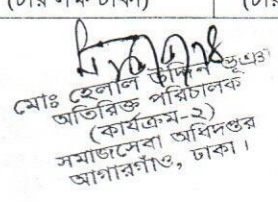 মোঃ হেলাল উদ্দিন ভূঁঞা
অতিরিক্ত পরিচালক
(কার্যক্রম-২)
সমাজসেবা অধিদপ্তর
আগারগাঁও, ঢাকা।